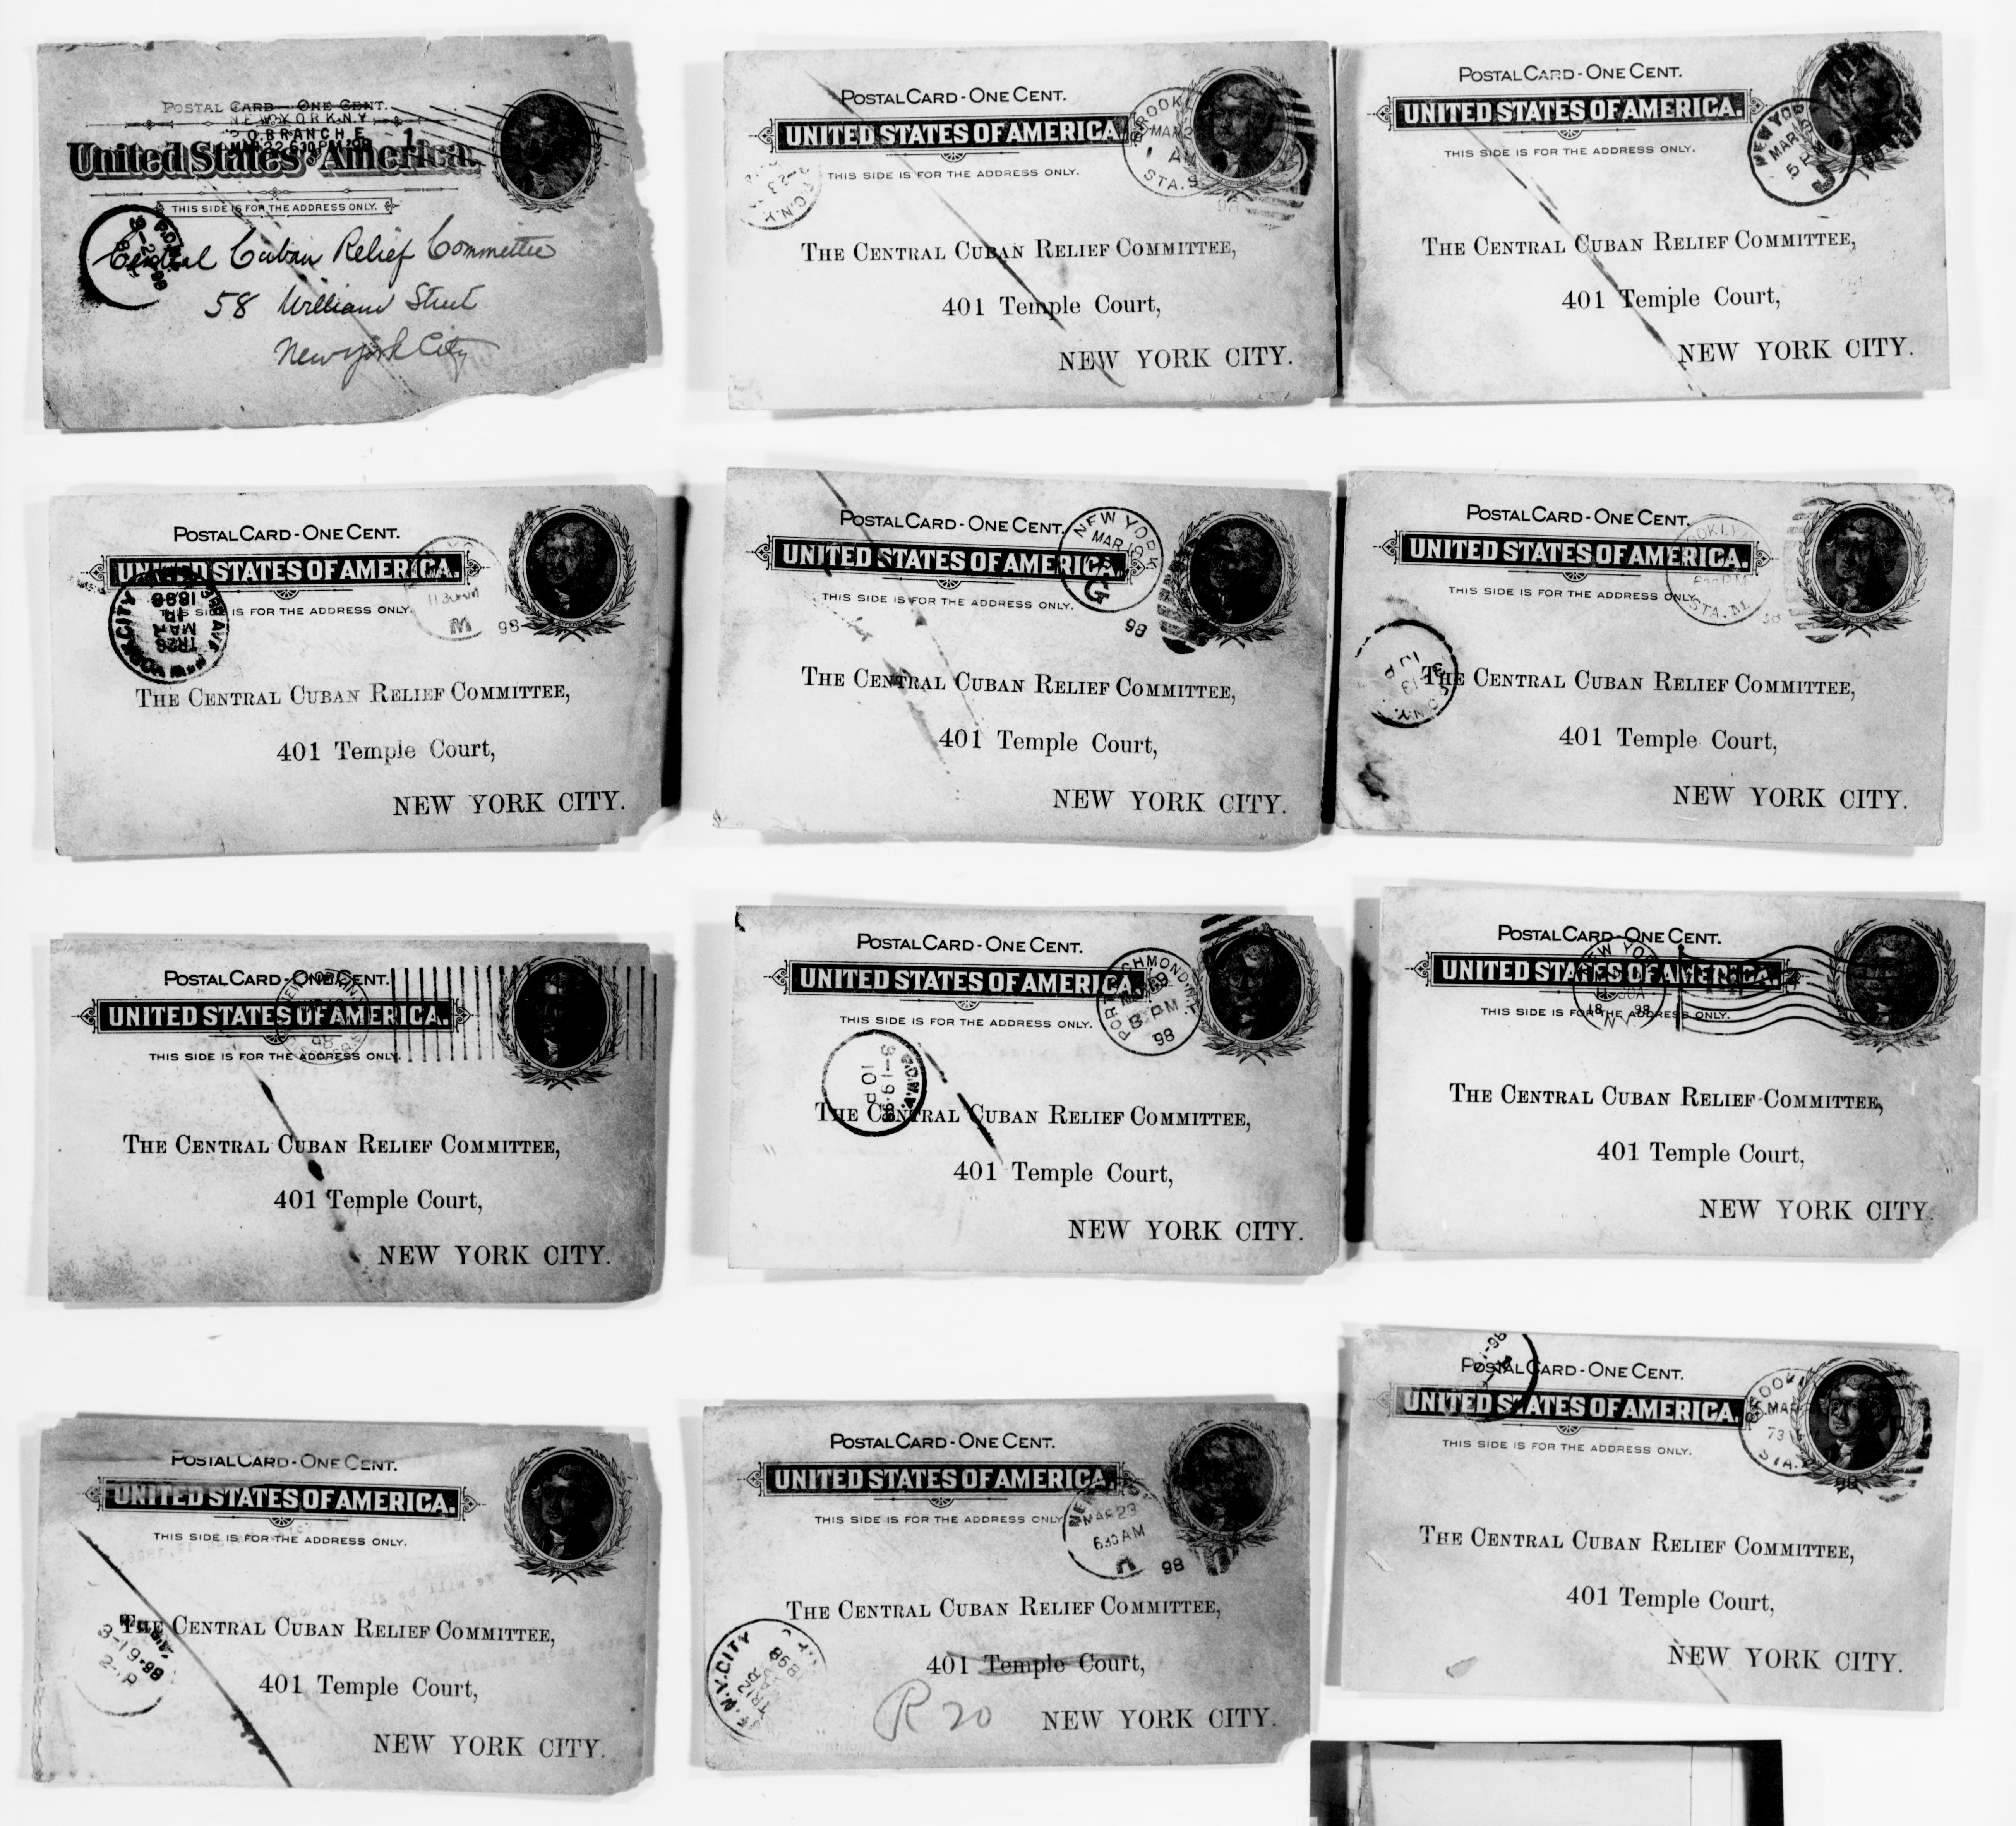 POSTAL CARD — ONE CENT.
NEW YORK, N.Y.
P.O. BRANCH E. 1
MAR 22 630 PM '98
United States of America.
THIS SIDE IS FOR THE ADDRESS ONLY.
Central Cuban Relief Committee
58 William Street
New York City
POSTAL CARD - ONE CENT.
UNITED STATES OF AMERICA.
MAR 2
1 AM
STA. S
98
THIS SIDE IS FOR THE ADDRESS ONLY.
THE CENTRAL CUBAN RELIEF COMMITTEE,
401 Temple Court,
NEW YORK CITY.
POSTAL CARD - ONE CENT.
UNITED STATES OF AMERICA.
THIS SIDE IS FOR THE ADDRESS ONLY.
NEW YOR
MAR
5 P
J
THE CENTRAL CUBAN RELIEF COMMITTEE,
401 Temple Court,
NEW YORK CITY.
POSTAL CARD - ONE CENT.
UNITED STATES OF AMERICA.
THIS SIDE IS FOR THE ADDRESS ONLY.
1130
M 98
THE CENTRAL CUBAN RELIEF COMMITTEE,
401 Temple Court,
NEW YORK CITY.
POSTAL CARD - ONE CENT.
UNITED STATES OF AMERICA.
THIS SIDE IS FOR THE ADDRESS ONLY.
NEW YORK
MAR 19
G
98
THE CENTRAL CUBAN RELIEF COMMITTEE,
401 Temple Court,
NEW YORK CITY.
POSTAL CARD - ONE CENT.
UNITED STATES OF AMERICA.
THIS SIDE IS FOR THE ADDRESS ONLY.
STA. M.
THE CENTRAL CUBAN RELIEF COMMITTEE,
401 Temple Court,
NEW YORK CITY.
POSTAL CARD - ONE CENT.
UNITED STATES OF AMERICA.
THIS SIDE IS FOR THE ADDRESS ONLY.
THE CENTRAL CUBAN RELIEF COMMITTEE,
401 Temple Court,
NEW YORK CITY.
POSTAL CARD - ONE CENT.
UNITED STATES OF AMERICA.
THIS SIDE IS FOR THE ADDRESS ONLY.
PORT RICHMOND N.Y.
8 PM
98
THE CENTRAL CUBAN RELIEF COMMITTEE,
401 Temple Court,
NEW YORK CITY.
POSTAL CARD - ONE CENT.
UNITED STATES OF AMERICA.
THIS SIDE IS FOR THE ADDRESS ONLY.
THE CENTRAL CUBAN RELIEF COMMITTEE,
401 Temple Court,
NEW YORK CITY.
POSTAL CARD - ONE CENT.
UNITED STATES OF AMERICA.
THIS SIDE IS FOR THE ADDRESS ONLY.
3-19-98
2-P
THE CENTRAL CUBAN RELIEF COMMITTEE,
401 Temple Court,
NEW YORK CITY.
POSTAL CARD - ONE CENT.
UNITED STATES OF AMERICA.
THIS SIDE IS FOR THE ADDRESS ONLY.
MAR 23
630 AM
98
THE CENTRAL CUBAN RELIEF COMMITTEE,
401 Temple Court,
N.Y. CITY
R 20
NEW YORK CITY.
POSTAL CARD - ONE CENT.
UNITED STATES OF AMERICA.
THIS SIDE IS FOR THE ADDRESS ONLY.
MAR
STA.
98
THE CENTRAL CUBAN RELIEF COMMITTEE,
401 Temple Court,
NEW YORK CITY.